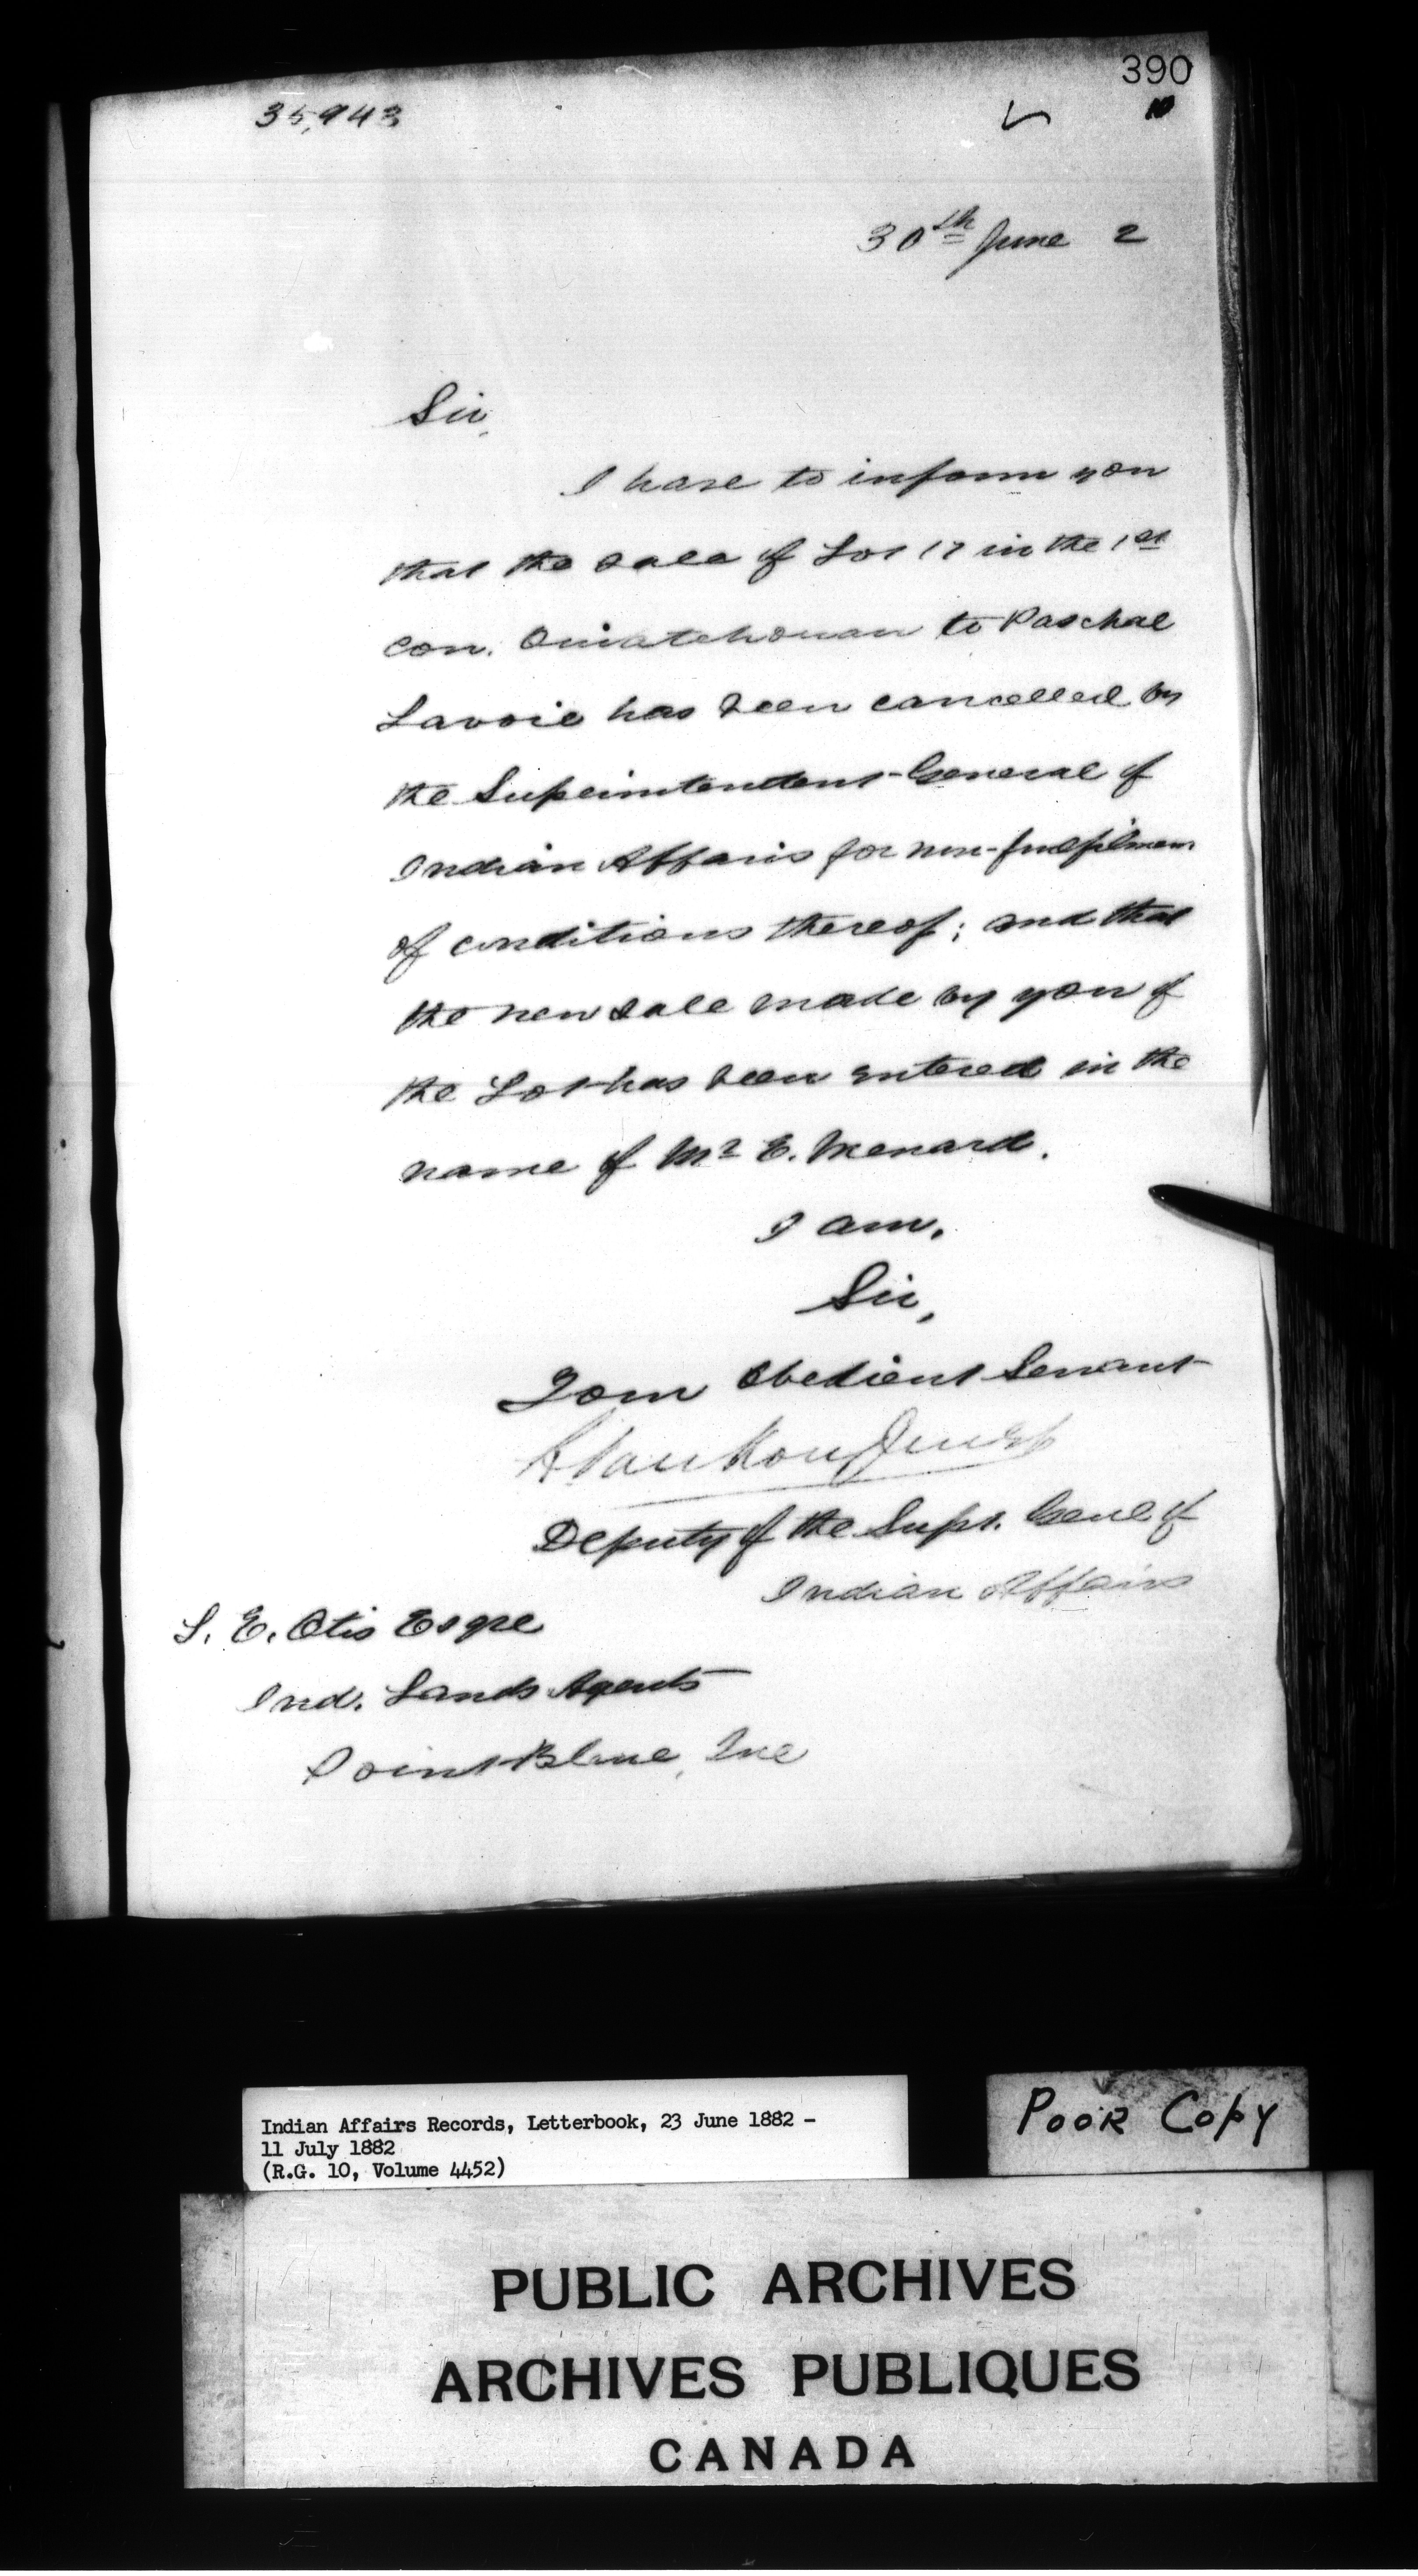 390
35,943
30th June 2
Sir,
I have to inform you
that the sale of Lot 17 in the 1st
con. Ouiatchouan to Paschal
Lavoie has been cancelled by
the Superintendent-General of
Indian Affairs for non-fulfilment
of conditions thereof; and that
the new sale made by you of
the Lot has been entered in the
name of Mr E. Menard.
I am,
Sir,
Your Obedient Servant
L VanKoughnet
Deputy of the Supt. Genl of
Indian Affairs
L. E. Otis Esqre
Ind. Lands Agent
Point Blue, Que
Indian Affairs Records, Letterbook, 23 June 1882 -
11 July 1882
(R.G. 10, Volume 4452)
POOR COPY
PUBLIC ARCHIVES
ARCHIVES PUBLIQUES
CANADA